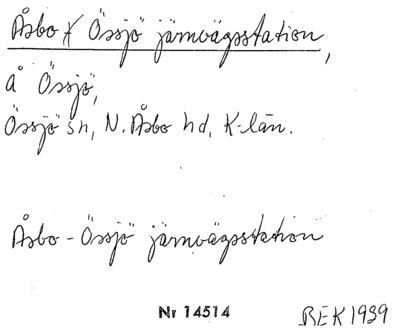 Åsbo Össjö järnvägsstation,
å Össjö,
Össjö sn, N. Åsbo hd, K-län.
Åsbo-Össjö järnvägsstation
Nr 14514
BEK 1939